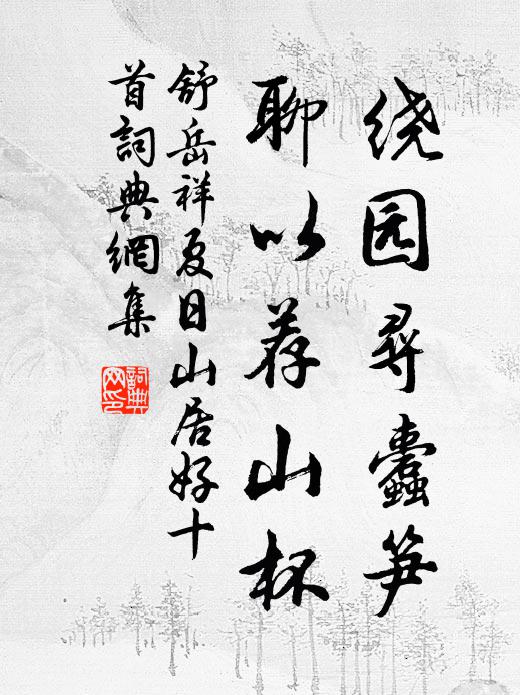 绕园寻蠹笋
聊以荐山杯
舒岳祥夏日山居好十
首詞典網集
詞典
网印